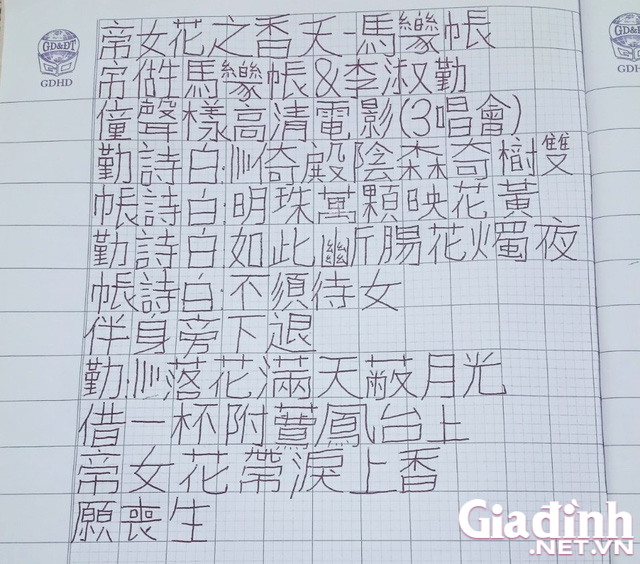 GD&ĐT
GDHD
GD&
GDH
帝女花之香夭-馬纞帳
帝做牲馬纞帳&李淑勤
僮聲樣高清電影(3唱會)
勤詩白:倚殿陰森奇樹雙
帳詩白:明珠萬顆映花黃
勤詩白:如此斷腸花燭夜
帳詩白:不須待女
伴身旁下退
勤:落花滿天蔽月光
借一杯附薦鳳台上
帝女花帶淚上香
願喪生
Giađình
.NET.VN